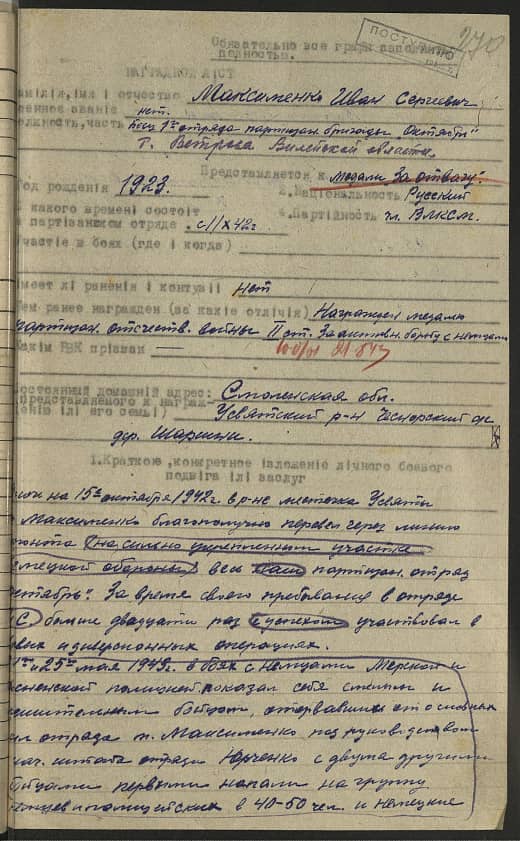 ПОСТУПИЛО
270
Обязательно все графы заполнять
полностью.
НАГРАДНОЙ ЛІСТ
амілія, імя і отчество Максименко Иван Сергеевич
оенное званіе нет.
олжность, часть боец 1го отряда партизан. бригады "Октябрь"
т. Ветрова Вилейской области
Представляется к медали "За отвагу".
Год рождения 1923.
2. Національность Русский
какого времени состоіт
в партізанском отряде. с 1/X 42г
4. Партійность чл. ВЛКСМ.
частіе в боях (где і когда)
меет лі раненія і контузіі нет
ем ранее награжден (за какіе отлічія) Награжден медалью
партизан. отечеств. войны II ст. За активн. борьбу с немцами
Какім РВК прізван
остоянный домашній адрес: Смоленская обл.
представляемого к награж-
енію ілі его семьі) Усвятский р-н
дер. Шаршни.
I. Краткое, конкретное ізложеніе лічного боевого
подвіга ілі заслуг
на 15е октября 1942г. в р-не местечка Усвяты
Максименко благополучно перевел через линию
ронта (на сильно укрепленном участке
емецкой обороны) весь наш партизан. отряд
ктябрь". За время своего пребывания в отряде
С больше двадцати раз успехом участвовал в
евых и диверсионных операциях.
и 25го мая 1943г. в боях с немцами Мерской и
полицией, показал себя смелым и
ешительным бойцом, оторвавшись от основных
ил отряда т. Максименко под руководством
нач. штаба отряда Юрченко с двумя другими
бойцами первыми напали на группу
немцев и полицейских в 40-50 чел. и немецкие